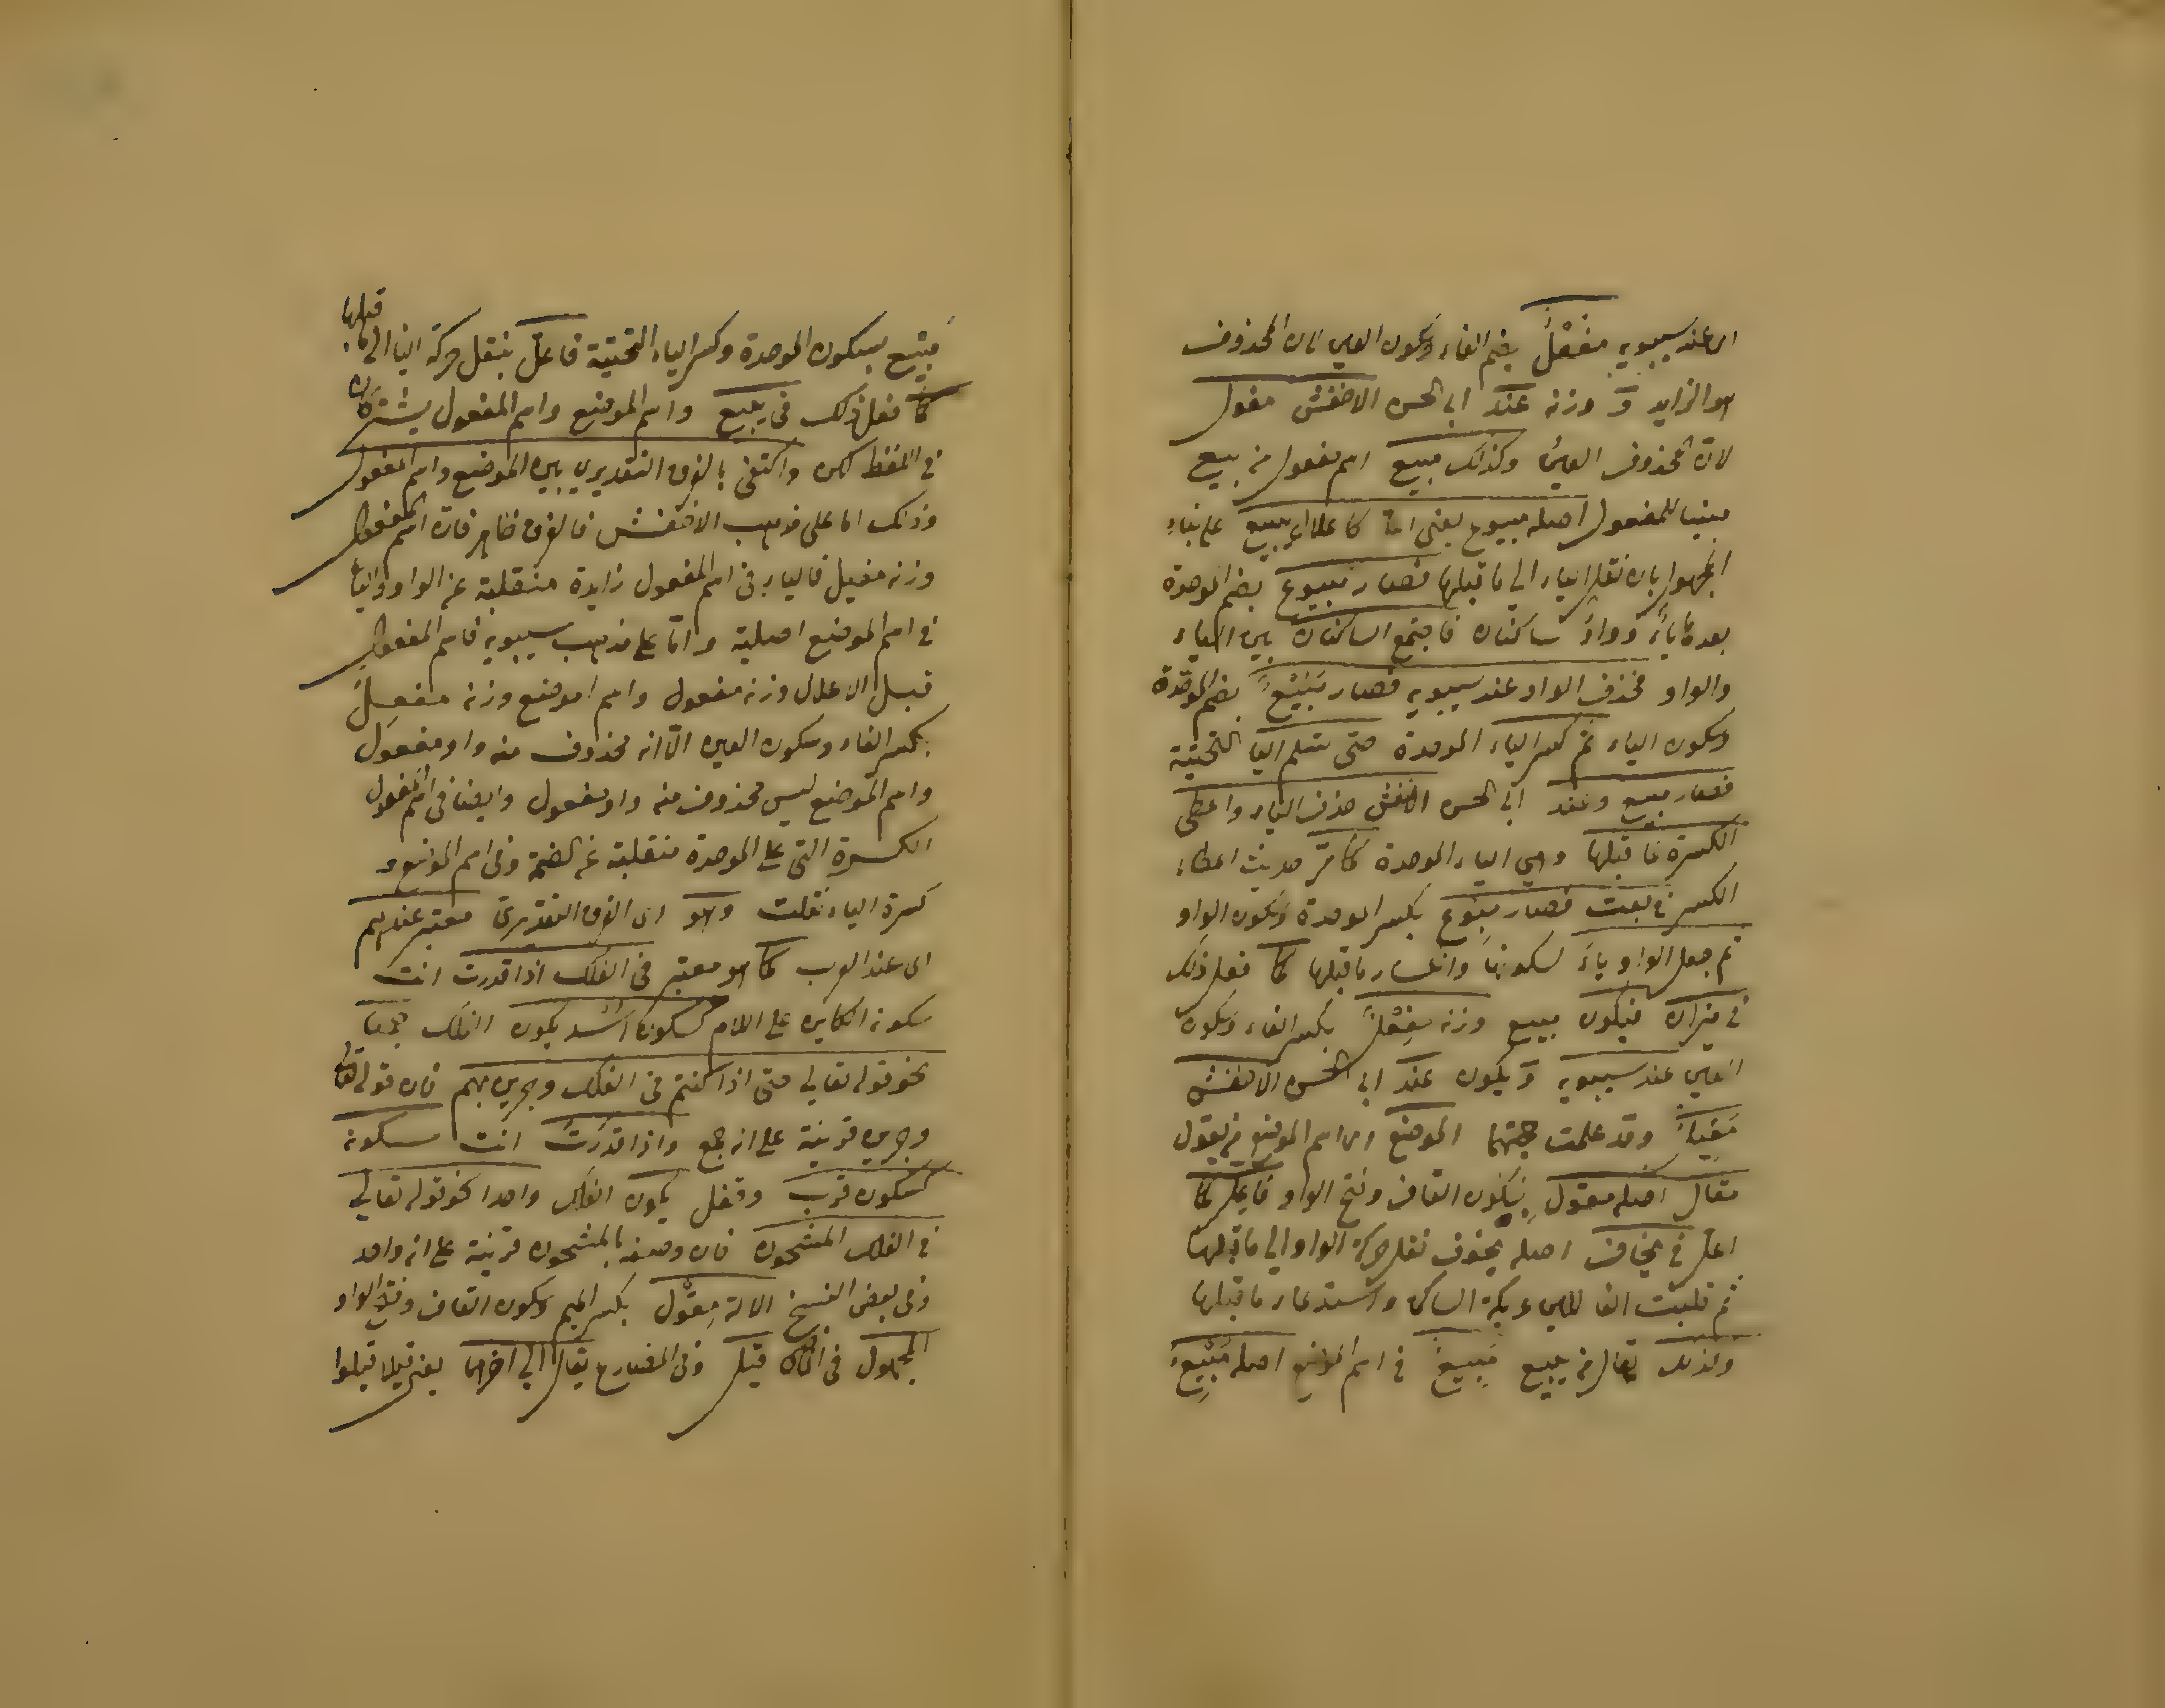 اى عند سيبويه مَفُعْلٌ بضم الفاء وسكون العين لان المحذوف
هو الزايد وَ وزنه عند ابى الحسن الاخفش مفول
لان المحذوف العين وكذلك مبيع اسم مفعول من يبيع
مبنيا للمفعول اصله مبيوع يعنى اعل كاعلال يبيع على بناء
المجهول بان نقل الياء الى ما قبلها فصار مبيوع بضم الموحدة
بعدها ياءٌ وواوٌ ساكنان فاجتمع الساكنان بين الياء
والواو فحذف الواو عند سيبويه فصار مَبُيْعٌ بضم الموحدة
وسكون الياء ثم كسر الباء الموحدة حتى تسلم اليا التحتية
فصار مبيع وعند ابى الحسن الاخفش حذف الياء واعطى
الكسرة لما قبلها وهى الباء الموحدة كما مر حديث اعطاء
الكسر فى بعت فصار مبوع بكسر الموحدة وسكون الواو
ثم جعل الواو ياء لسكونها وانكسار ما قبلها كما فعل ذلك
فى ميزان فيكون مبيع وزنه مفِعْلٌ بكسر الفاء وسكون
العين عند سيبويه وَ يكون عند ابى الحسن الاخفش
مَفِيلٌ وقد علمت جهتهما الموضع اى اسم الموضع من يقول
مقال اصله مقول بسكون القاف وفتح الواو فاعل كما
اعل فى يخاف اصله يخوف نقل حركة الواو الى ما قبلها
ثم قلبت الفا للين عريكة الساكن واستدعاء ما قبلها
وكذلك يقال من يبيع مَبِيعٌ فى اسم الموضع اصله مَبْيِعٌ
مَبْيِع بسكون الموحدة وكسر الياء التحتية فاعل بنقل حركة اليا الى ما قبلها
كما فعل ذلك فى يبيع واسم الموضع واسم المفعول يشتركان
فى اللفظ لكن واكتفى بالفرق التقديرى بين الموضع واسم المفعول
وذلك اما على مذهب الاخفش فالفرق ظاهر فان اسم المفعول
وزنه مفيل فالياء فى اسم المفعول زايدة منقلبة عن الواو واليا
فى اسم الموضع اصلية واما على مذهب سيبويه فاسم المفعول
قبل الاعلال وزنه مفعول واسم الموضع وزنه مفعِلٌ
بكسر الفاء وسكون العين الّا انه محذوف منه واو مفعول
واسم الموضع ليس محذوف منه واو مفعول وايضا فى اسم المفعول
الكسرة التى على الموحدة منقلبة عن الضمة وفى اسم الموضع
كسرة الياء نقلت وهو اى الفرق التقديرى معتبر عندهم
اى عند العرب كما هو معتبر فى الفلك اذا قدرت انت
سكونه الكاين على اللام كسكون اُسْد يكون الفلك جمعا
نحو قوله تعالى حتى اذا كنتم فى الفلك وجرين بهم فان قوله تعالى
وجرين قرينة على انه جمع واذا قدرت انت سكونه
كسكون قرب وقفل يكون الفلك واحدا نحو قوله تعالى
فى الفلك المشحون فان وصفه بالمشحون قرينة على انه واحد
وفى بعض النسخ الالة مِقْوَل بكسر الميم وسكون القاف وفتح الواو
المجهول فى الماضى قيل وفى المضارع يقال الى اخرهما يعنى قيلا قيلوا